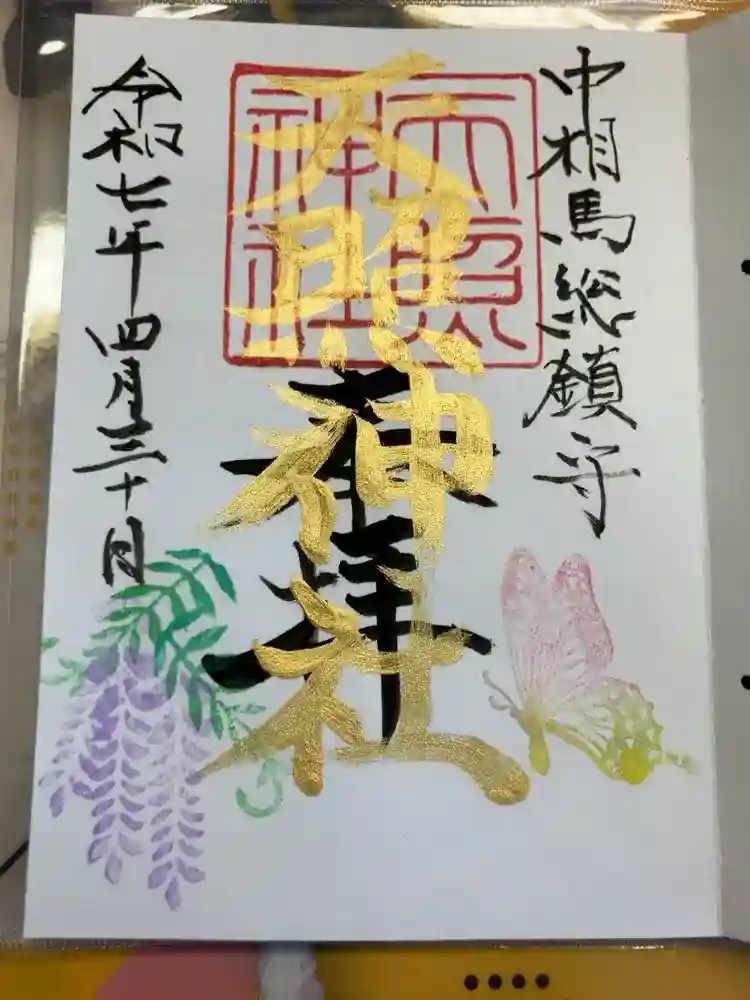 中相馬総鎮守
奉拝
天照神社
天照
神社
令和七年四月三十日